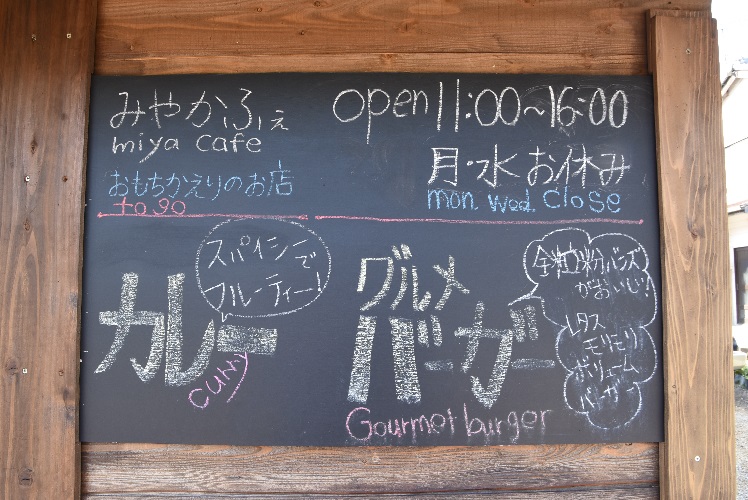 みやかふぇ
miya cafe
おもちかえりのお店
to go
open 11:00～16:00
月・水 お休み
mon. wed close
スパイシーで
フルーティー!
カレー
curry
グルメ
バーガー
Gourmet burger
全粒粉バンズ
がおいしい!
レタス
モリモリ
ボリューム
バーガー